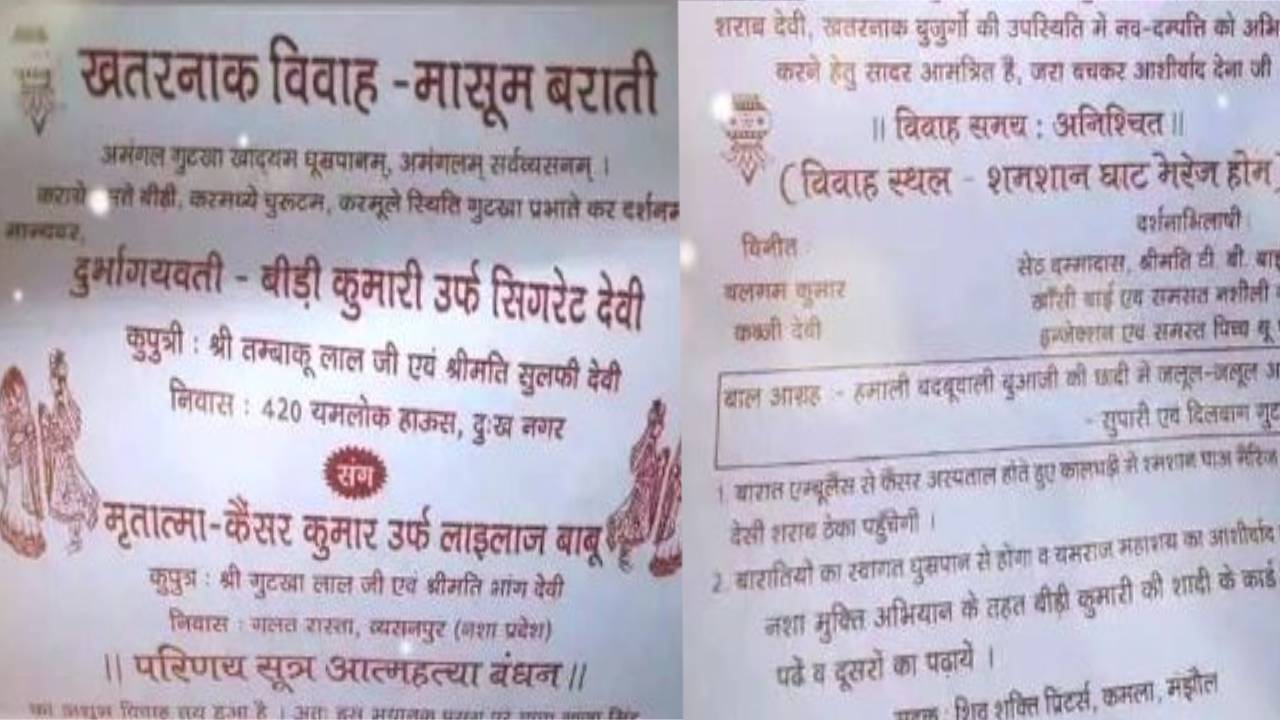 खतरनाक विवाह -मासूम बराती
अमंगल गुटखा खाद्यम धूम्रपानम्, अमंगलम् सर्वव्यसनम् ।
बीड़ी, करमध्ये चुरूटम, करमूले स्थिति गुटखा प्रभाते कर दर्शनम
मान्यवर,
दुर्भागयवती - बीड़ी कुमारी उर्फ सिगरेट देवी
कुपुत्री : श्री तम्बाकू लाल जी एवं श्रीमति सुलफी देवी
निवास : 420 यमलोक हाऊस, दुःख नगर
संग
मृतात्मा-कैंसर कुमार उर्फ लाइलाज बाबू
कुपुत्र : श्री गुटखा लाल जी एवं श्रीमति भांग देवी
निवास : गलत रास्ता, व्यसनपुर (नशा प्रदेश)
|| परिणय सूत्र आत्महत्या बंधन ||
का अशुभ विवाह तय हुआ है । अतः इस भयानक
शराब देवी, खतरनाक बुजुर्गो की उपस्थिति में नव-दम्पत्ति को अभि
करने हेतु सादर आमंत्रित है, जरा बचकर आशीर्वाद देना जी
|| विवाह समय : अनिश्चित ||
(विवाह स्थल - शमशान घाट मेरेज होम)
दर्शनाभिलाषी :
विनीत :
सेठ दम्मादास, श्रीमति टी. बी. बाई
बलगम कुमार
खाँसी बाई एवं समसत नशीली
कब्जी देवी
इन्जेक्शन एवं समस्त पिच्च थू
बाल आग्रह :- हमाली बदबूवाली बुआजी की छादी में जलूल-जलूल
- सुपारी एवं दिलबाग गुट
1. बारात एम्बूलैंस से कैंसर अस्पताल होते हुए कालघड़ी मे श्मशान घाअ मैरिज
देसी शराब ठेका पहुँचेगी ।
2. बारातियो का स्वागत धुम्रपान से होगा व यमराज महाशय का आशीर्वाद
नशा मुक्ति अभियान के तहत बीड़ी कुमारी की शादी के कार्ड
पढें व दूसरो का पढ़ायें ।
शिव शक्ति प्रिटर्स, कमला, मंझौल